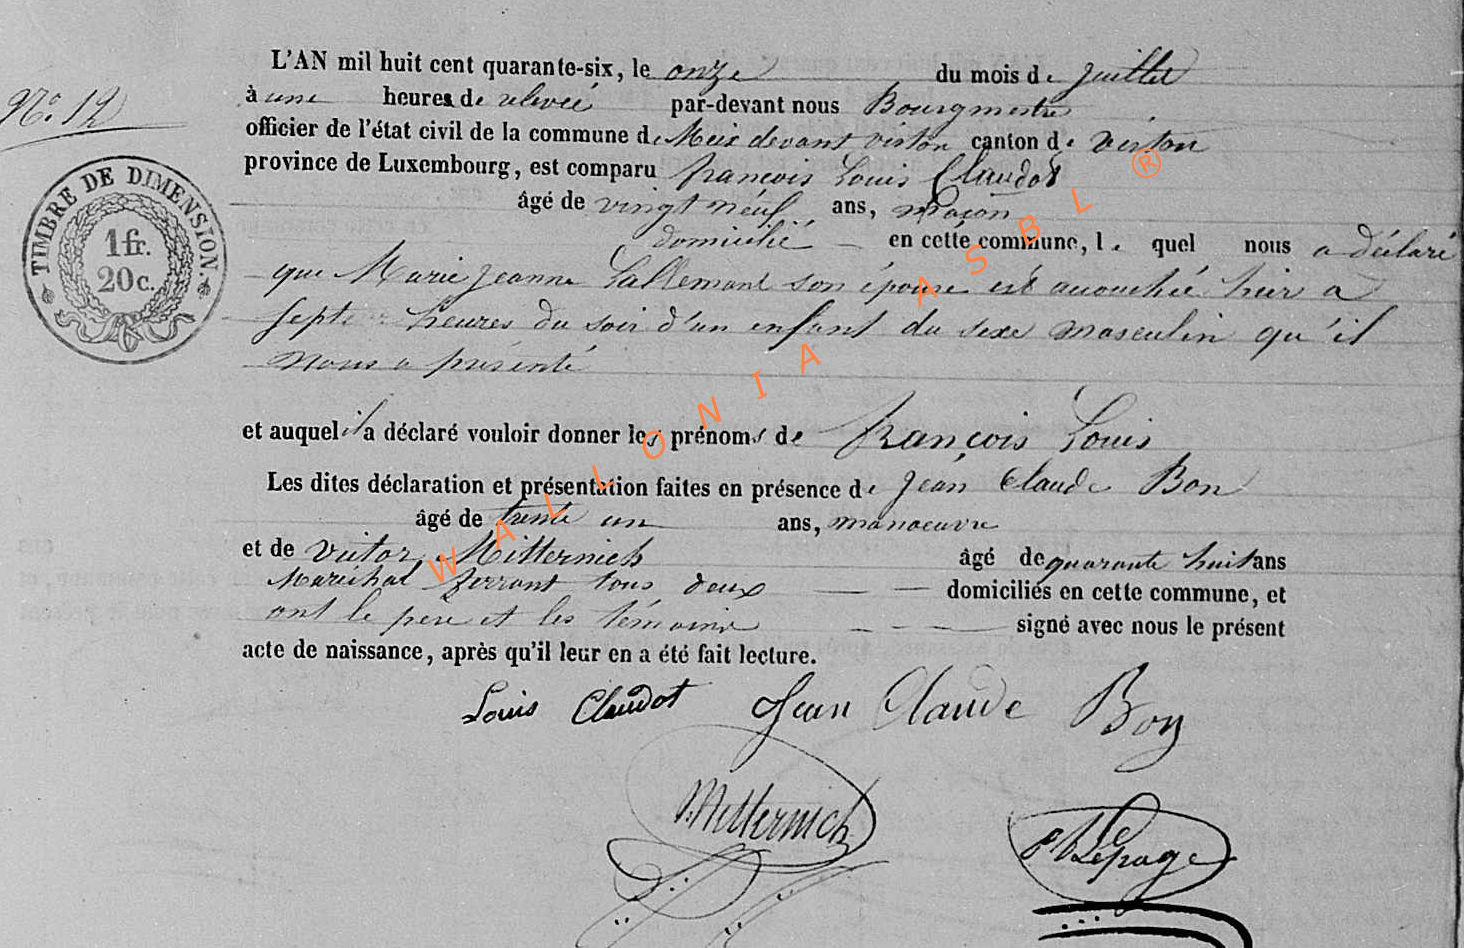 L'AN mil huit cent quarante-six, le onze du mois de juillet
N.° 12
à une heures de relevée par-devant nous Bourgmestre
officier de l'état civil de la commune de Meix devant virton canton de virton
province de Luxembourg, est comparu françois Louis Claudot
âgé de vingt neuf ans, maçon
domicilié en cette commune, le quel nous a déclaré
que Marie jeanne Lallemant son épouse est accouchée hier a
Sept heures du soir d'un enfant du sexe masculin qu'il
nous a présenté
et auquel il a déclaré vouloir donner les prénoms de françois Louis
Les dites déclaration et présentation faites en présence de jean Claude Bon
âgé de trente un ans, manoeuvre
et de victor Mitternich âgé de quarante huit ans
Maréchal ferrant tous deux domiciliés en cette commune, et
ont le père et les témoins signé avec nous le présent
acte de naissance, après qu'il leur en a été fait lecture.
Louis Claudot Jean Claude Bon
Mitternich Lepage
TIMBRE DE DIMENSION.
1 fr.
20 c.
WALLONIA ASBL ®